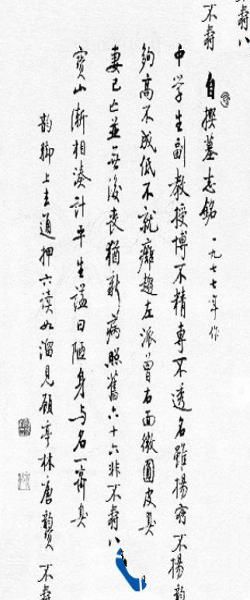 不壽八
不壽
自撰墓志銘 一九七七年作
中学生副教授博不精專不透名雖揚實不揚韵
夠高不成低不就癱趨左派曾右面微圓皮臭
妻已亡並無後喪猶新病照舊六十六非不壽八
寶山漸相湊計平生謚曰陋身与名一齊臭
韵脚上去通押六读如溜見顧亭林唐韵 不壽